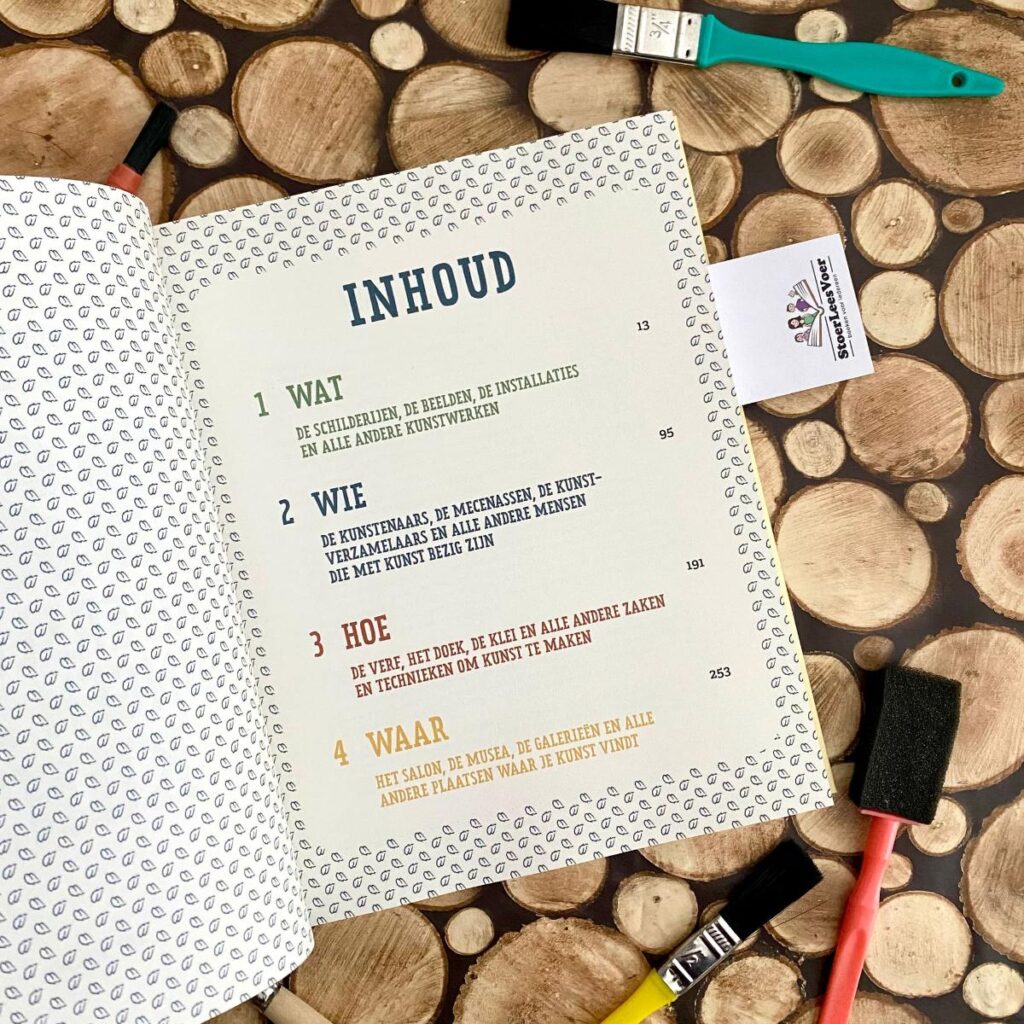 3/4"
INHOUD
13
1 WAT
DE SCHILDERIJEN, DE BEELDEN, DE INSTALLATIES
EN ALLE ANDERE KUNSTWERKEN
95
2 WIE
DE KUNSTENAARS, DE MECENASSEN, DE KUNST-
VERZAMELAARS EN ALLE ANDERE MENSEN
DIE MET KUNST BEZIG ZIJN
191
3 HOE
DE VERF, HET DOEK, DE KLEI EN ALLE ANDERE ZAKEN
EN TECHNIEKEN OM KUNST TE MAKEN
253
4 WAAR
HET SALON, DE MUSEA, DE GALERIEËN EN ALLE
ANDERE PLAATSEN WAAR JE KUNST VINDT
StoerLeesVoer
boeken voor iedereen